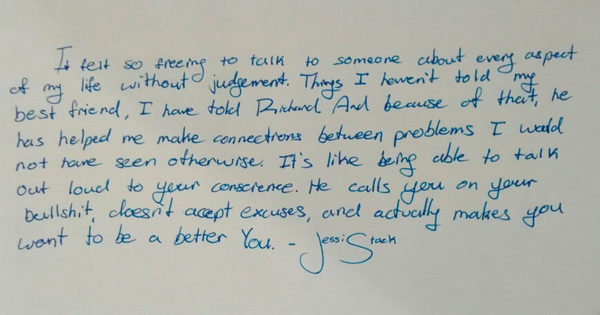 It felt so freeing to talk to someone about every aspect
of my life without judgement. Things I haven't told my
best friend, I have told Richard. And because of that, he
has helped me make connections between problems I would
not have seen otherwise. It's like being able to talk
out loud to your conscience. He calls you on your
bullshit, doesn't accept excuses, and actually makes you
want to be a better You. - Jessi Stack